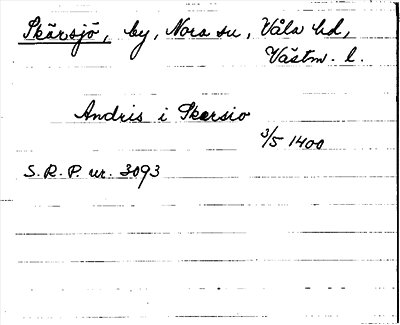 Skärsjö, by, Nora sn, Våla hd,
Västm. l.
Andris i Skersio
3/5 1400
S. R. P. nr. 3093